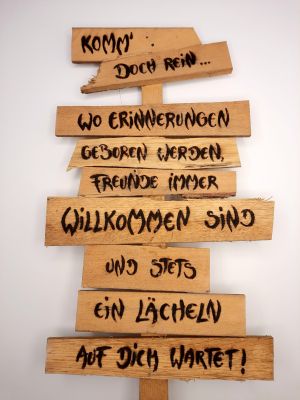 KOMM'
DOCH REIN...
WO ERINNERUNGEN
GEBOREN WERDEN,
FREUNDE IMMER
WILLKOMMEN SIND
UND STETS
EIN LÄCHELN
AUF DICH WARTET!